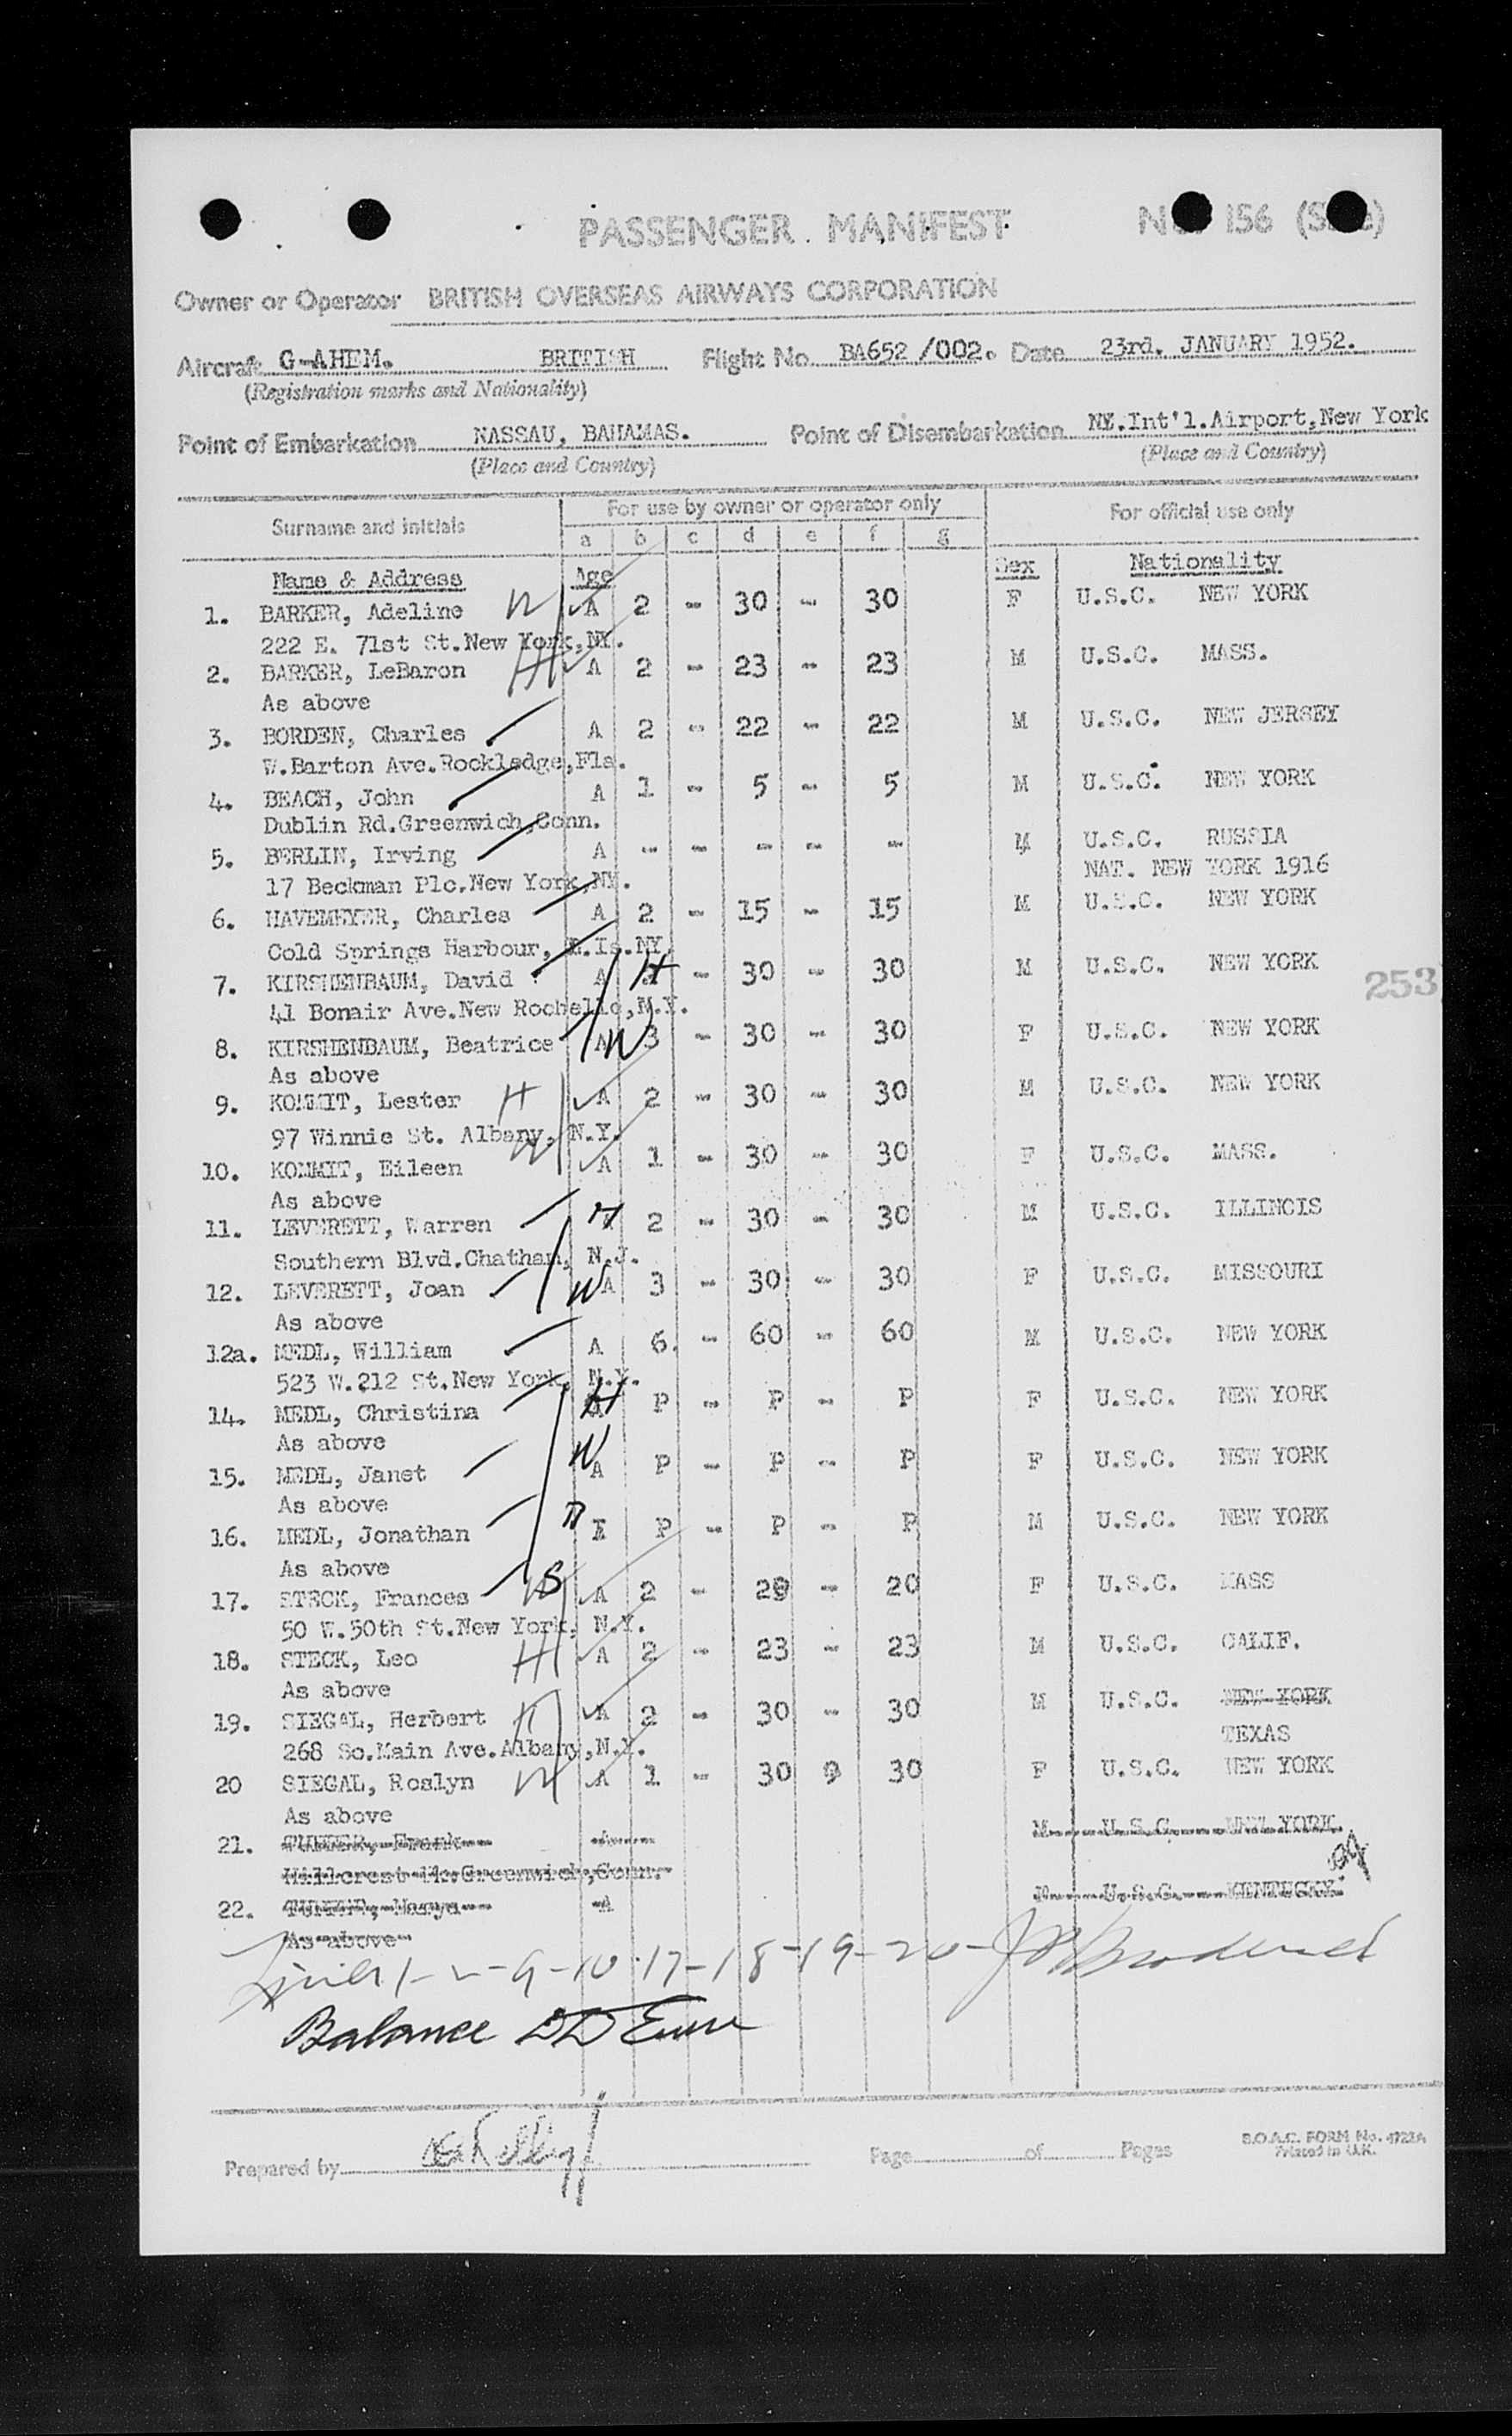 PASSENGER MANIFEST
156
Owner or Operator BRITISH OVERSEAS AIRWAYS CORPORATION
Aircraft G-AHEM. BRITISH Flight No. BA652 /002. Date 23rd. JANUARY 1952.
(Registration marks and Nationality)
Point of Embarkation NASSAU, BAHAMAS. Point of Disembarkation NY.Int'l.Airport,New York
(Place and Country) (Place and Country)
Surname and initials For use by owner or operator only For official use only
a b c d e f g
Name & Address Age Sex Nationality
1. BARKER, Adeline W A 2 - 30 - 30 F U.S.C. NEW YORK
222 E. 71st St.New York,NY.
2. BARKER, LeBaron H A 2 - 23 - 23 M U.S.C. MASS.
As above
3. BORDEN, Charles A 2 - 22 - 22 M U.S.C. NEW JERSEY
W.Barton Ave.Rockledge,Fla.
4. BEACH, John A 1 - 5 - 5 M U.S.C. NEW YORK
Dublin Rd.Greenwich,Conn.
5. BERLIN, Irving A - - - - - M U.S.C. RUSSIA
17 Beckman Plc.New York,NY. NAT. NEW YORK 1916
6. HAVEMEYER, Charles A 2 - 15 - 15 M U.S.C. NEW YORK
Cold Springs Harbour, L.Is.NY.
7. KIRSHENBAUM, David A H - 30 - 30 M U.S.C. NEW YORK
253
41 Bonair Ave.New Rochelle,N.Y.
8. KIRSHENBAUM, Beatrice A W 3 - 30 - 30 F U.S.C. NEW YORK
As above
9. KOMMIT, Lester H A 2 - 30 - 30 M U.S.C. NEW YORK
97 Winnie St. Albany, N.Y.
10. KOMMIT, Eileen W A 1 - 30 - 30 F U.S.C. MASS.
As above
11. LEVERETT, Warren H 2 - 30 - 30 M U.S.C. ILLINOIS
Southern Blvd.Chatham, N.J.
12. LEVERETT, Joan W A 3 - 30 - 30 F U.S.C. MISSOURI
As above
12a. MEDL, William A 6. - 60 - 60 M U.S.C. NEW YORK
523 W.212 St.New York, N.Y.
14. MEDL, Christina H P - P - P F U.S.C. NEW YORK
As above
15. MEDL, Janet W A P - P - P F U.S.C. NEW YORK
As above
16. MEDL, Jonathan P - P - P M U.S.C. NEW YORK
As above
17. STECK, Frances A 2 - 20 - 20 F U.S.C. MASS
50 W.50th St.New York, N.Y.
18. STECK, Leo H A 2 - 23 - 23 M U.S.C. CALIF.
As above
19. SIEGAL, Herbert H A 2 - 30 - 30 M U.S.C. NEW YORK
268 So.Main Ave.Albany,N.Y. TEXAS
20 SIEGAL, Roslyn W A 1 - 30 9 30 F U.S.C. NEW YORK
As above
21. Frank M U.S.C. NEW YORK.
Hillcrest Greenwich,Conn.
22. A U.S.C. KENTUCKY
As above
1-2-9-10-17-18-19-20-
Balance
Prepared by Page of Pages
B.O.A.C. FORM No. 4723A
Printed in U.K.